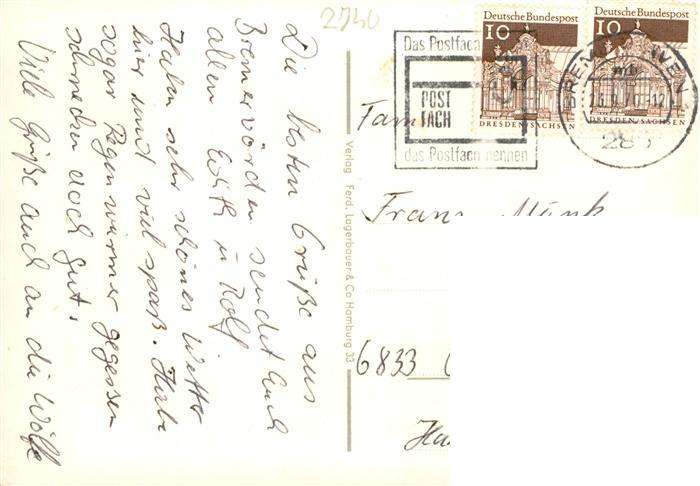 2740
Die besten Grüße aus
Bremervörden sendet Euch
allen Edith u Rolf
Haben sehr schönes Wetter
hier und viel spaß. Habe
sogar Regenwürmer gegessen
schmecken doch gut.
Viele Grüße auch an die Wölfe
Verlag Ferd. Lagerbauer & Co Hamburg 33
Das Postfach
POST
FACH
das Postfach nennen
Deutsche Bundespost
10
DRESDEN/SACHSEN
Deutsche Bundespost
10
DRESDEN/SACHSEN
285
Fam
Franz Münk
6833